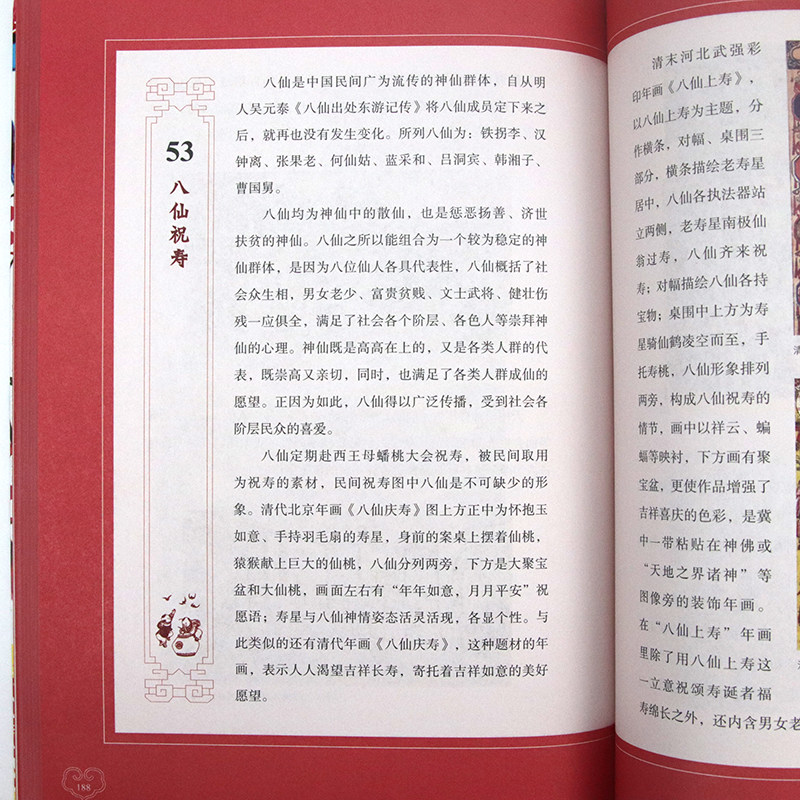 53
八仙祝寿
八仙是中国民间广为流传的神仙群体，自从明
人吴元泰《八仙出处东游记传》将八仙成员定下来之
后，就再也没有发生变化。所列八仙为：铁拐李、汉
钟离、张果老、何仙姑、蓝采和、吕洞宾、韩湘子、
曹国舅。
八仙均为神仙中的散仙，也是惩恶扬善、济世
扶贫的神仙。八仙之所以能组合为一个较为稳定的神
仙群体，是因为八位仙人各具代表性，八仙概括了社
会众生相，男女老少、富贵贫贱、文士武将、健壮伤
残一应俱全，满足了社会各个阶层、各色人等崇拜神
仙的心理。神仙既是高高在上的，又是各类人群的代
表，既崇高又亲切，同时，也满足了各类人群成仙的
愿望。正因为如此，八仙得以广泛传播，受到社会各
阶层民众的喜爱。
八仙定期赴西王母蟠桃大会祝寿，被民间取用
为祝寿的素材，民间祝寿图中八仙是不可缺少的形
象。清代北京年画《八仙庆寿》图上方正中为怀抱玉
如意、手持羽毛扇的寿星，身前的案桌上摆着仙桃，
猿猴献上巨大的仙桃，八仙分列两旁，下方是大聚宝
盆和大仙桃，画面左右有“年年如意，月月平安”祝
愿语；寿星与八仙神情姿态活灵活现，各显个性。与
此类似的还有清代年画《八仙庆寿》，这种题材的年
画，表示人人渴望吉祥长寿，寄托着吉祥如意的美好
愿望。
188
清末河北武强彩
印年画《八仙上寿》，
以八仙上寿为主题，分
作横条，对幅、桌围三
部分，横条描绘老寿星
居中，八仙各执法器站
立两侧，老寿星南极仙
翁过寿，八仙齐来祝
寿；对幅描绘八仙各持
宝物；桌围中上方为寿
星骑仙鹤凌空而至，手
托寿桃，八仙形象排列
两旁，构成八仙祝寿的
情节，画中以祥云、蝙
蝠等映衬，下方画有聚
宝盆，更使作品增强了
吉祥喜庆的色彩，是冀
中一带粘贴在神佛或
“天地之界诸神”等
图像旁的装饰年画。
在“八仙上寿”年画
里除了用八仙上寿这
一立意祝颂寿诞者福
寿绵长之外，还内含男女老